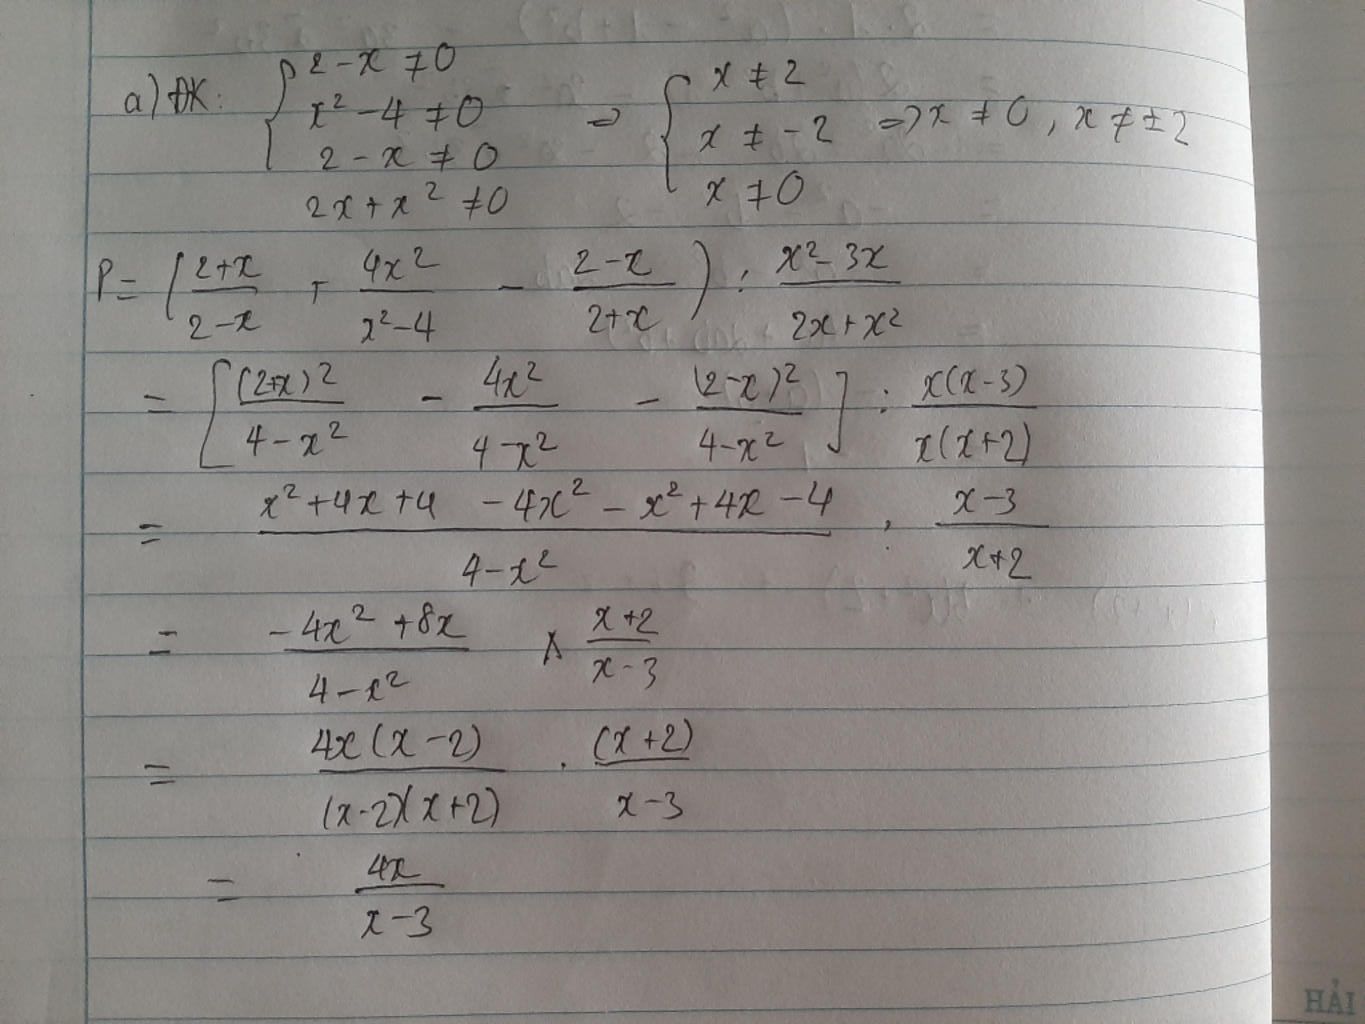 a) ĐK: { 2-x ≠ 0
x² - 4 ≠ 0
2 - x ≠ 0
2x + x² ≠ 0
⇒ { x ≠ 2
x ≠ -2
x ≠ 0
⇒ x ≠ 0, x ≠ ±2
P = ( (2+x)/(2-x) + 4x²/(x²-4) - (2-x)/(2+x) ) : (x²-3x)/(2x+x²)
= [ (2+x)²/(4-x²) - 4x²/(4-x²) - (2-x)²/(4-x²) ] : x(x-3)/x(x+2)
= (x²+4x+4 - 4x² - x² + 4x - 4)/(4-x²) : (x-3)/(x+2)
= (-4x² + 8x)/(4-x²) × (x+2)/(x-3)
= 4x(x-2)/(x-2)(x+2) . (x+2)/(x-3)
= 4x/(x-3)
HẢI